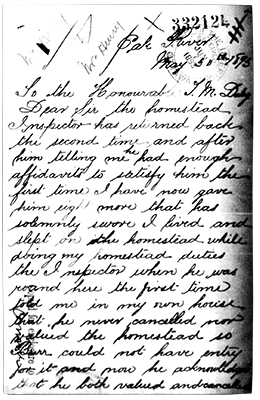 332124
Oak River
May 5th 1893
To the Honourable T. M. Daly
Dear Sir the homestead
Inspector has returned back
the second time and after
him telling me he had enough
affidavits to satisfy him the
first time I have now gave
him eight more that has
solemnly swore I lived and
slept on the homestead while
doing my homestead duties
the Inspector when he was
round here the first time
told me in my own house
that he never cancelled nor
valued the homestead so
could not have entry
for it and now he acknowledge
that he both valued and cancelled